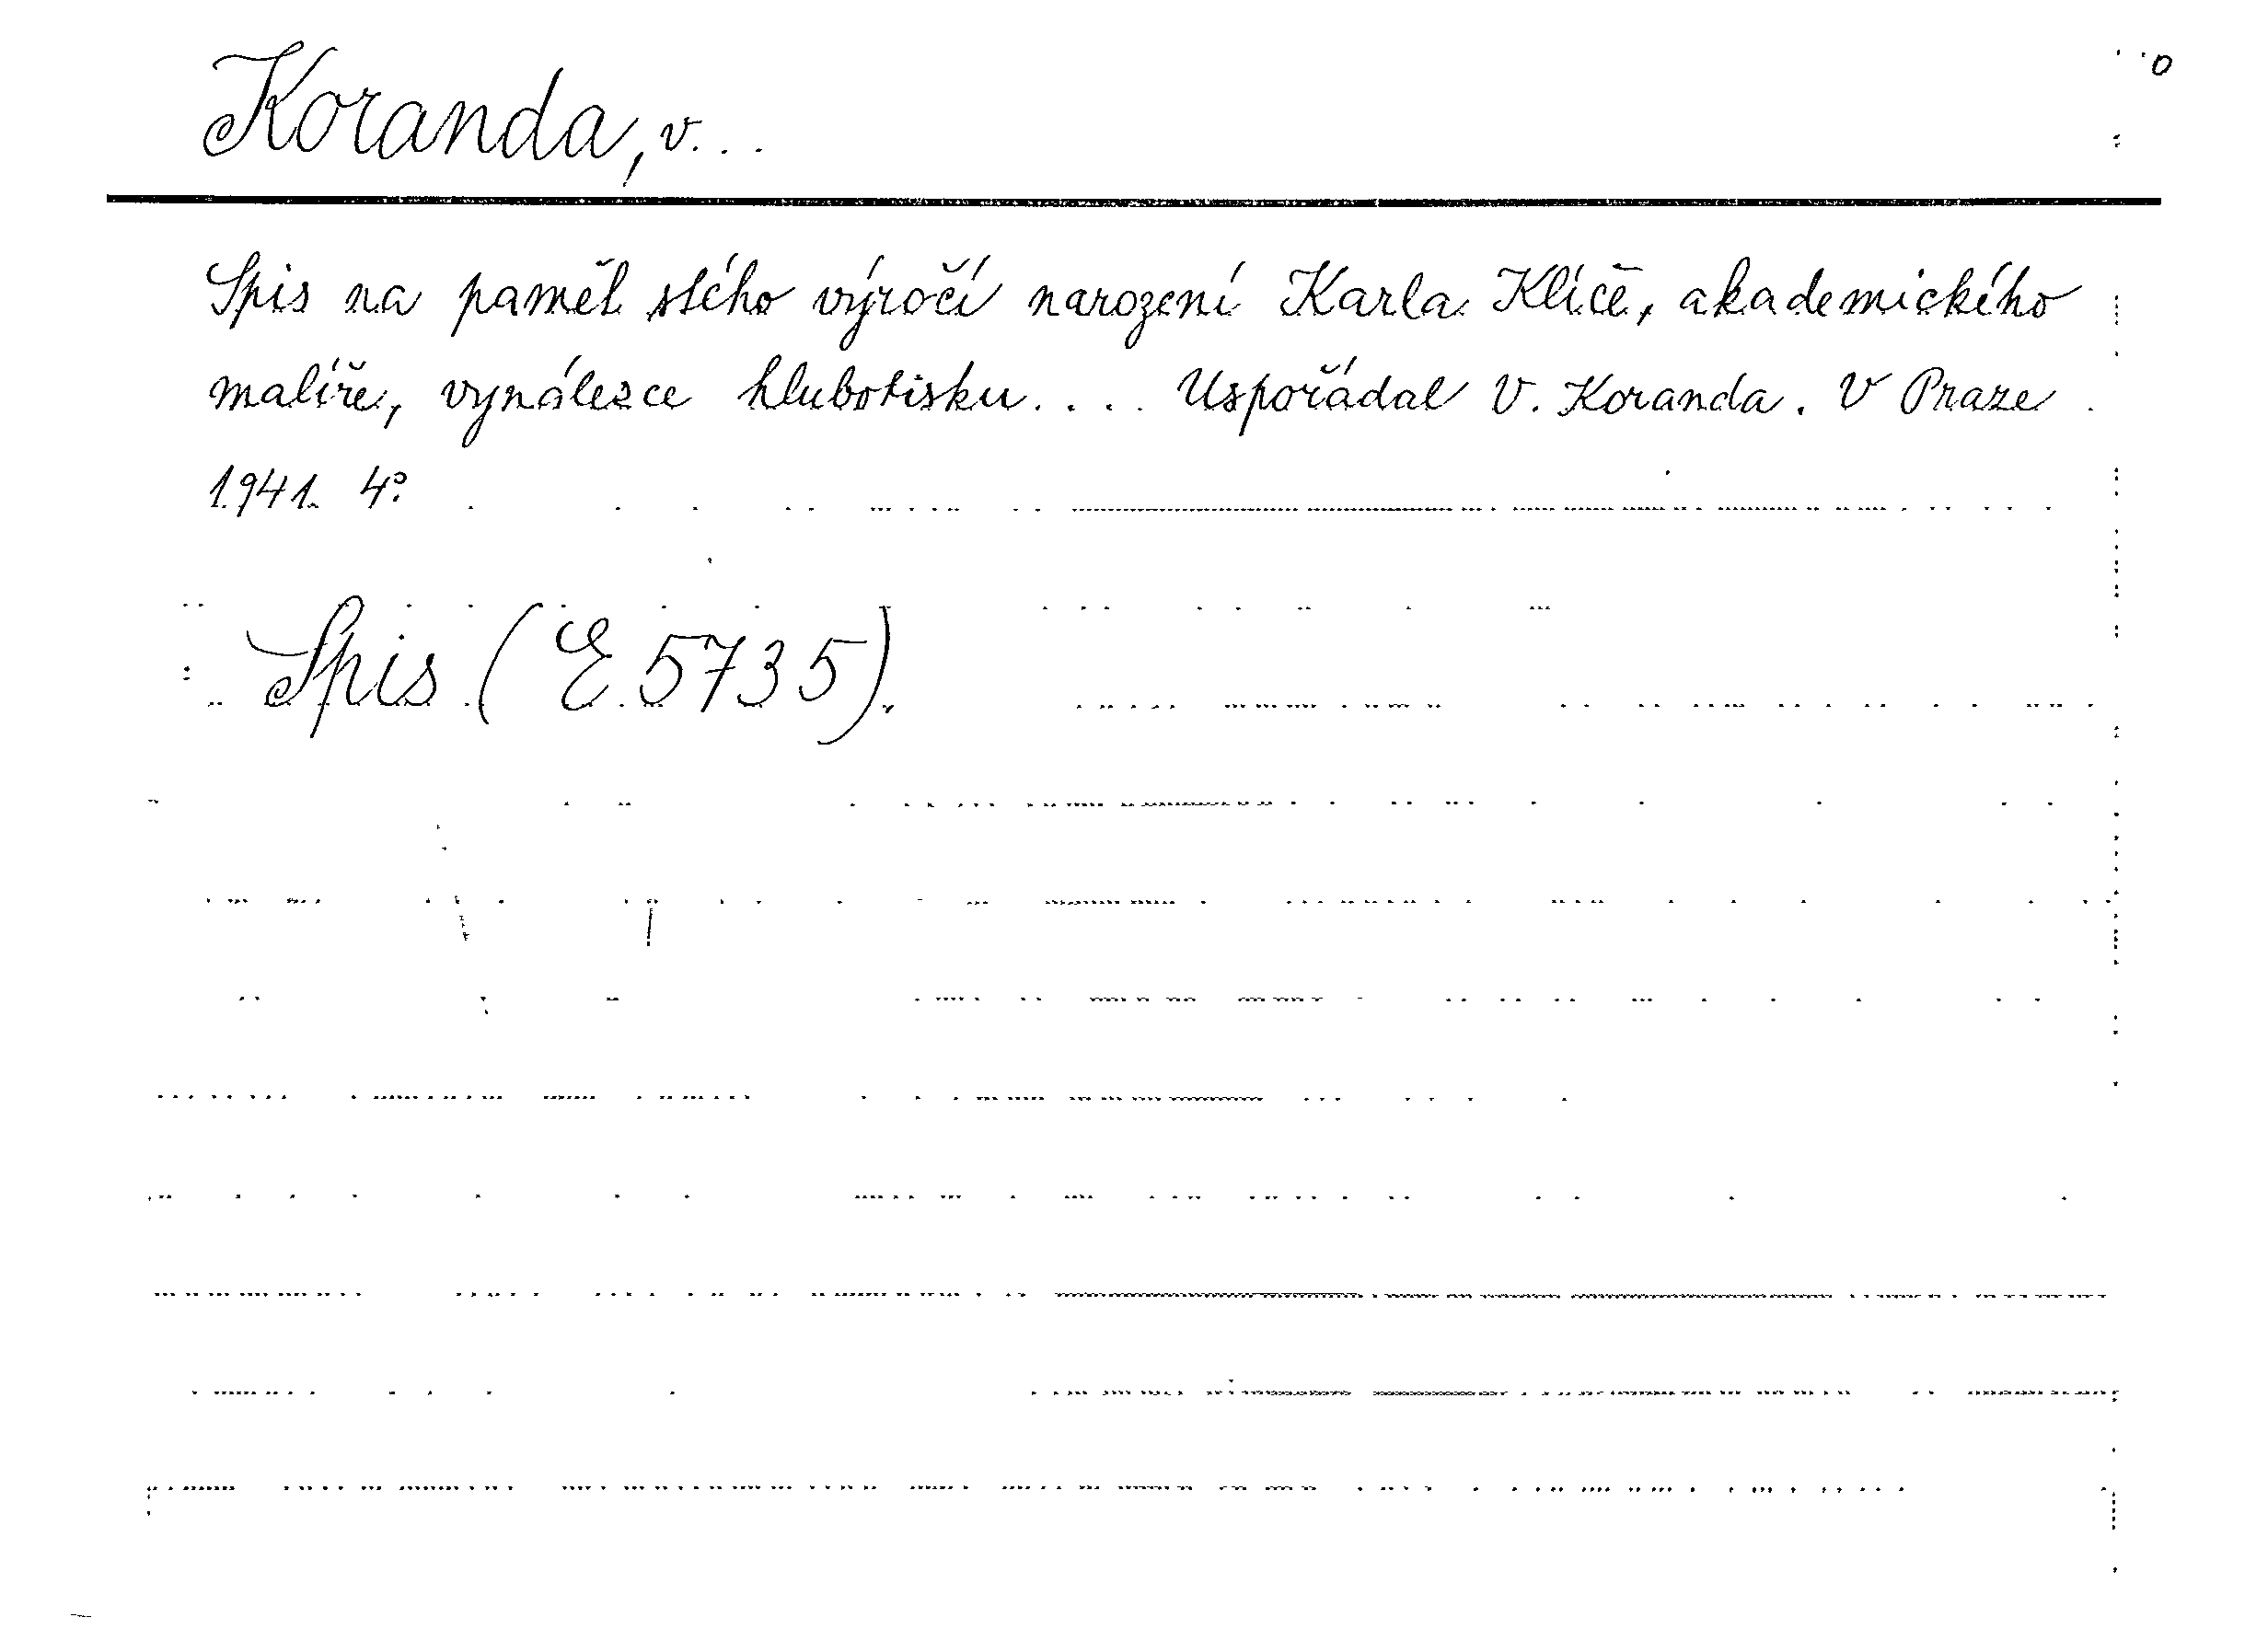 Koranda, V...
Spis na paměť stého výročí narození Karla Klíče, akademického
malíře, vynálezce hlubotisku.... Uspořádal V. Koranda. V Praze
1941. 4°.
Spis (E. 5735).